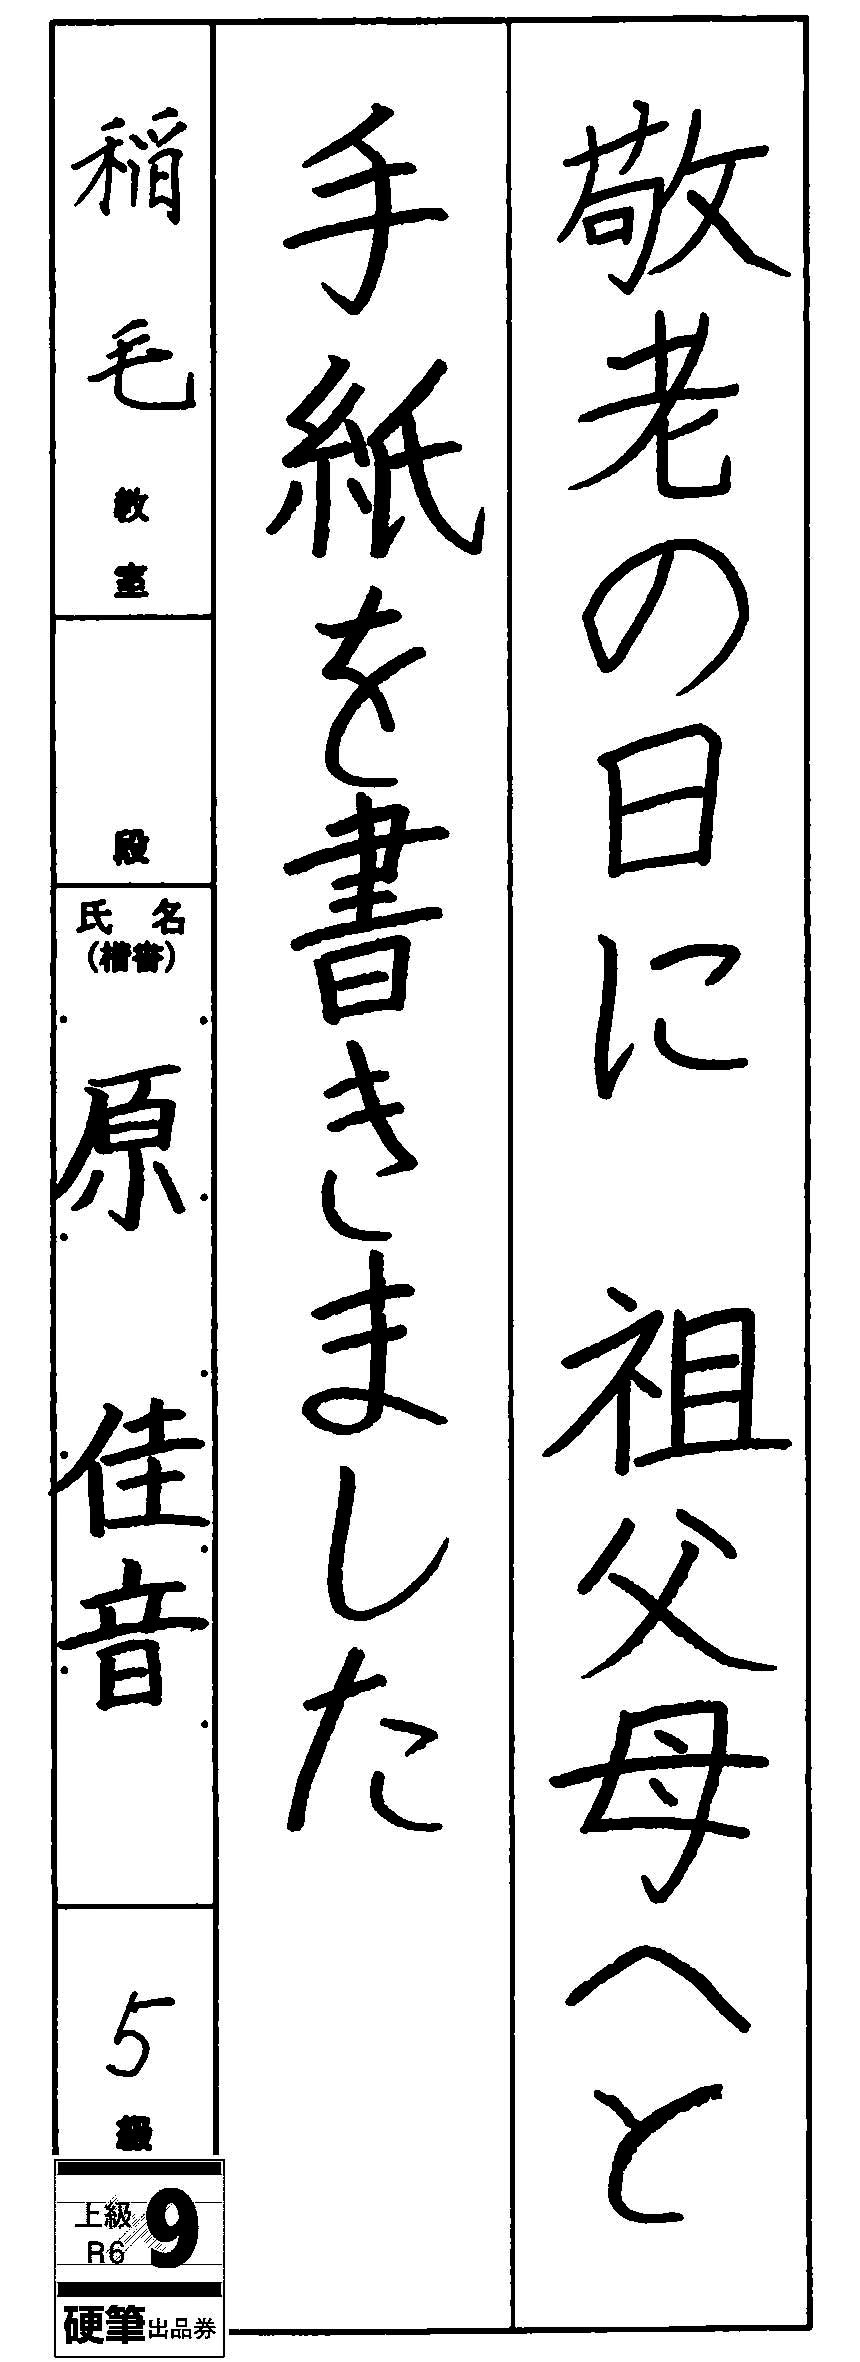 敬老の日に　祖父母へと
手紙を書きました
稲毛教室
段
氏名
（楷書）
原　佳音
5級
上級
R6
9
硬筆出品券